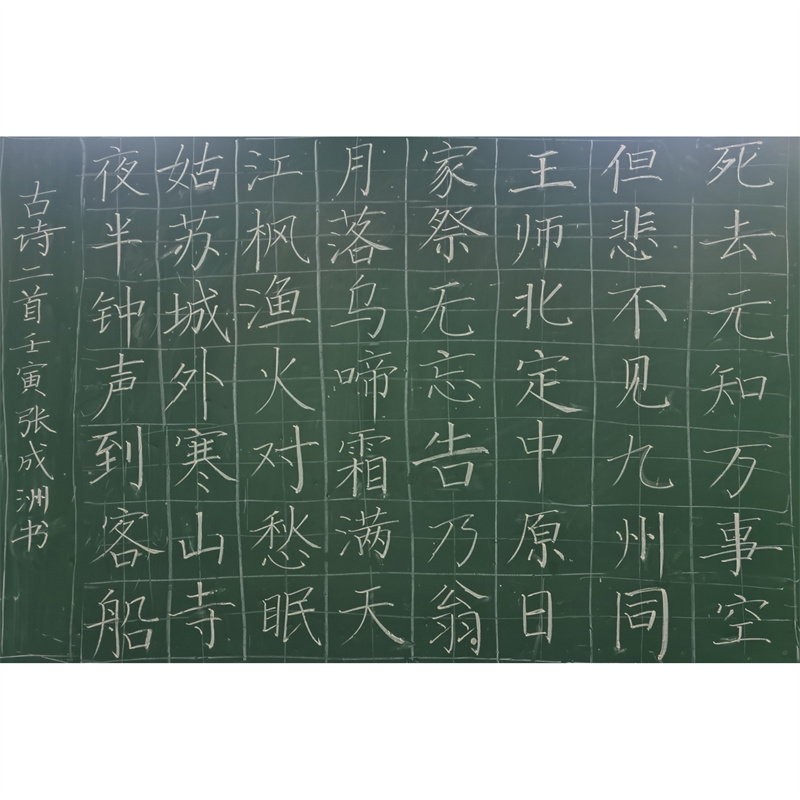 死去元知万事空
但悲不见九州同
王师北定中原日
家祭无忘告乃翁
月落乌啼霜满天
江枫渔火对愁眠
姑苏城外寒山寺
夜半钟声到客船
古诗二首壬寅张成洲书